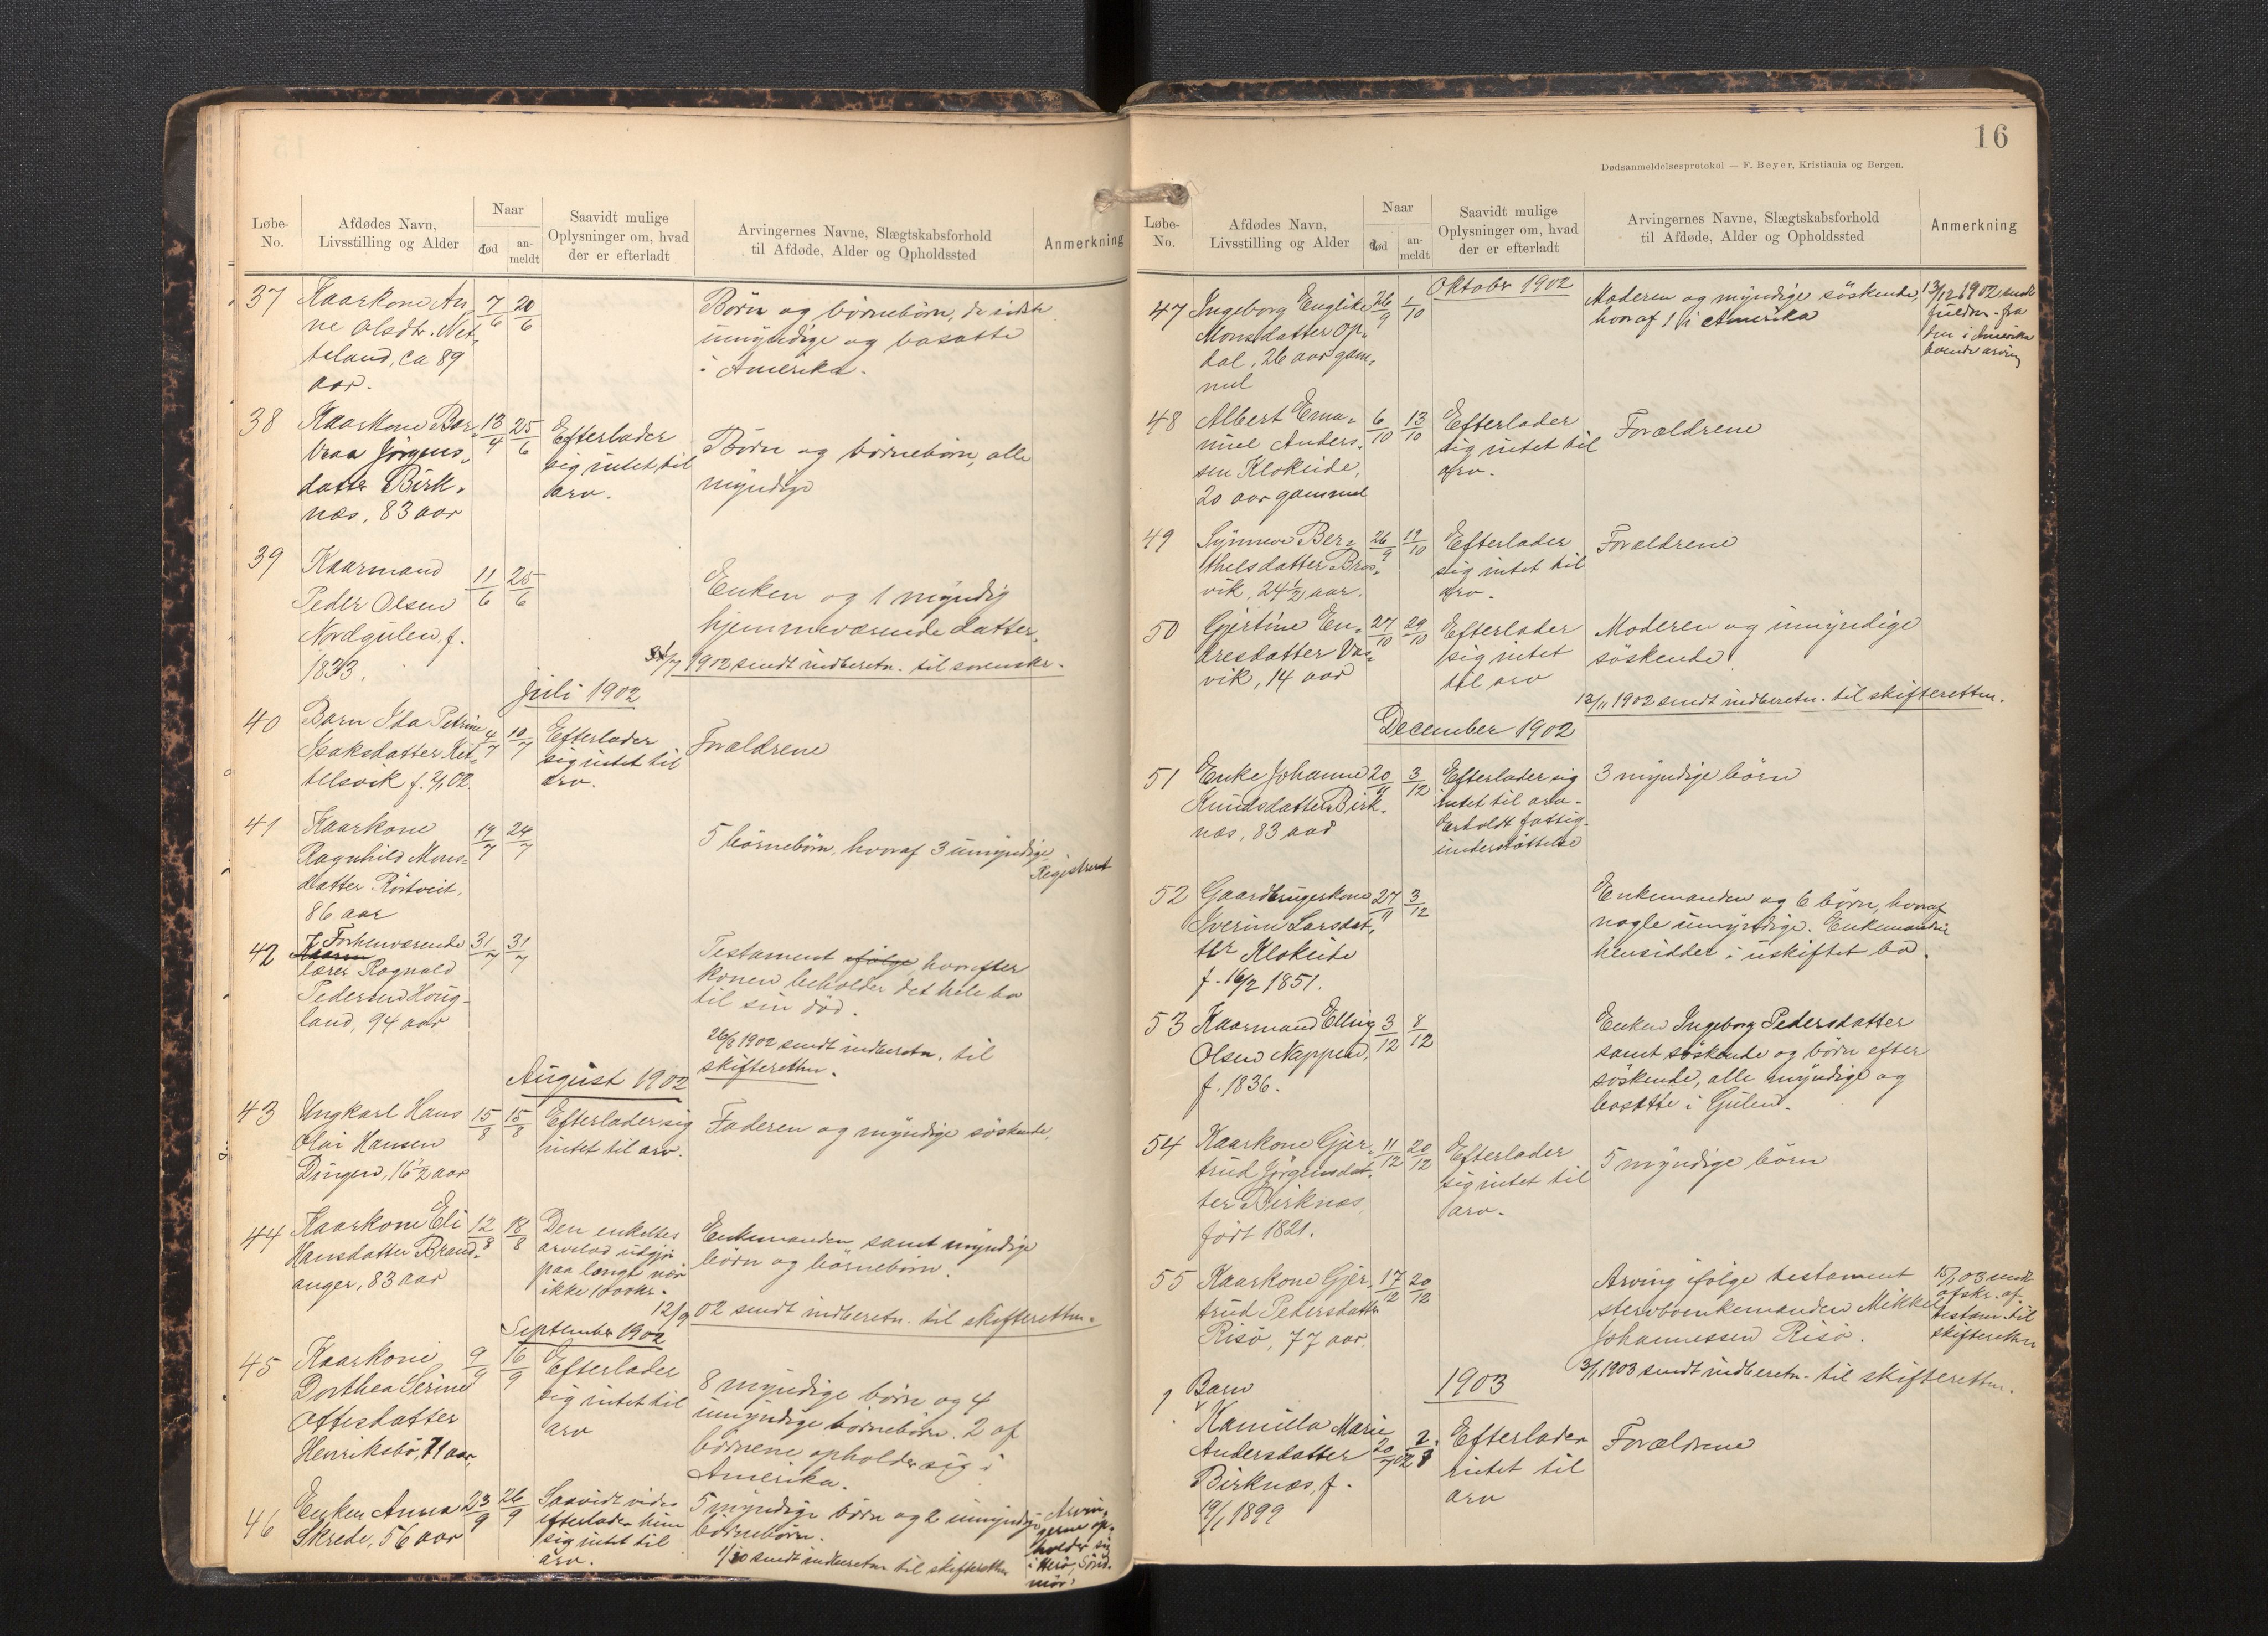 Løbe-
No.
Afdødes Navn,
Livsstilling og Alder
Naar
død
an-
meldt
Saavidt mulige
Oplysninger om, hvad
der er efterladt
Arvingernes Navne, Slægtskabsforhold
til Afdøde, Alder og Opholdssted
Anmerkning
37
Kaarkone An-
ne Olsdtr. Net-
teland, ca 89
aar.
7/6
20/6
Børn og børnebørn, de sidste
umyndige og bosatte
i Amerika.
38
Kaarkone Bar-
braa Jörgens-
datter Birk-
næs, 83 aar
13/4
25/6
Efterlader
sig intet til
arv.
Børn og börnebörn, alle
myndige
39
Kaarmand
Peder Olsen
Nordgulen, f.
1833.
11/6
25/6
Enken og 1 myndig
hjemmeværende datter.
/7 1902 sendt indberetn. til sorenskr.
Juli 1902
40
Barn Ida Petrine
Isaksdatter Ket-
telsvik f. 2/1 02.
4/7
10/7
Efterlader
sig intet til
arv.
Forældrene
41
Kaarkone
Ragnhild Mons-
datter Rörtveit,
86 aar
19/7
24/7
5 börnebörn, hvoraf 3 umyndige
Registreret
42
Forhenværende
lærer Ragnald
Pedersen Houg-
land, 94 aar
31/7
31/7
Testament ifølge hvorefter
konen beholder det hele bo
til sin död.
26/8 1902 sendt indberetn. til
skifteretten.
August 1902
43
Ungkarl Hans
Olai Hansen
Dingen, 16 1/2 aar
15/8
15/8
Efterlader sig
intet til arv.
Faderen og myndige söskende.
44
Kaarkone Eli
Hansdatter Brand-
anger, 83 aar
12/8
18/8
Den enkeltes
arvelod udgjør
paa langt nær
ikke 1000 kr.
Enkemanden samt myndige
börn og börnebörn.
12/9 02 sendt indberetn. til skifteretten.
September 1902
45
Kaarkone
Dorthea Serine
Offesdatter
Henriksbö, 71 aar.
9/9
16/9
Efterlader
sig intet til
arv
8 myndige börn og 4
umyndige börnebörn. 2 af
börnene opholder sig i
Amerika.
46
Enken Anna
Skrede, 56 aar
23/9
26/9
Saavidt vides
efterlader hun
sig intet til
arv.
5 myndige börn og 2 umyndige
börnebörn.
Arvin-
gerne op-
holder sig
i Herö, Sönd-
mör
1/10 sendt indberetn til skifteretten
16
Dødsanmeldelsesprotokol — F. Beyer, Kristiania og Bergen.
Løbe-
No.
Afdødes Navn,
Livsstilling og Alder
Naar
død
an-
meldt
Saavidt mulige
Oplysninger om, hvad
der er efterladt
Arvingernes Navne, Slægtskabsforhold
til Afdøde, Alder og Opholdssted
Anmerkning
Oktober 1902
47
Ingeborg Englike
Monsdatter Op-
dal, 26 aar gam-
mel
26/9
1/10
Moderen og myndige söskende,
hvoraf 1 i Amerika
13/12 1902 sendt
fuldm. fra
den i Amerika
boende arving
48
Albert Ema-
nuel Anders-
sen Klokeide,
20 aar gammel
6/10
13/10
Efterlader
sig intet til
arv.
Forældrene
49
Synneve Ber-
thelsdatter Bros-
vik, 24 1/2 aar.
26/9
19/10
Efterlader
sig intet til
arv.
Forældrene
50
Gjertine En-
dresdatter Vas-
vik, 14 aar
27/10
29/10
Efterlader
sig intet
til arv
Moderen og umyndige
söskende.
13/11 1902 sendt indberetn. til skifteretten.
December 1902
51
Enke Johanne
Knudsdatter Birk-
næs, 83 aar
20/11
3/12
Efterlader sig
intet til arv.
Erholdt fattig-
understöttelse
3 myndige börn
52
Gaardbrugerkone
Iverine Larsdat-
ter Klokeide
f. 16/2 1851.
27/11
3/12
Enkemanden og 6 börn, hvoraf
nogle umyndige. Enkemanden
hensidder i uskiftet bo.
53
Kaarmand Elling
Olsen Nappen,
f. 1836.
3/12
8/12
Enken Ingeborg Pedersdatter
samt söskende og börn efter
söskende, alle myndige og
bosatte i Gulen.
54
Kaarkone Gjer-
trud Jörgensdat-
ter Birknæs,
födt 1821.
11/12
20/12
Efterlader
sig intet til
arv.
5 myndige börn
55
Kaarkone Gjer-
trud Pedersdatter
Risö, 77 aar.
17/12
20/12
Arving ifölge testament
stervboenkemanden Mikkel
Johannessen Risö.
15/1 03 sendt
afskr. af
testam. til
skifteretten
3/1 1903 sendt indberetn. til skifteretten.
1903
1
Barn
Kamilla Marie
Andersdatter
Birknæs, f.
19/1 1899
20/7 02
Efterlader
intet til
arv
Forældrene